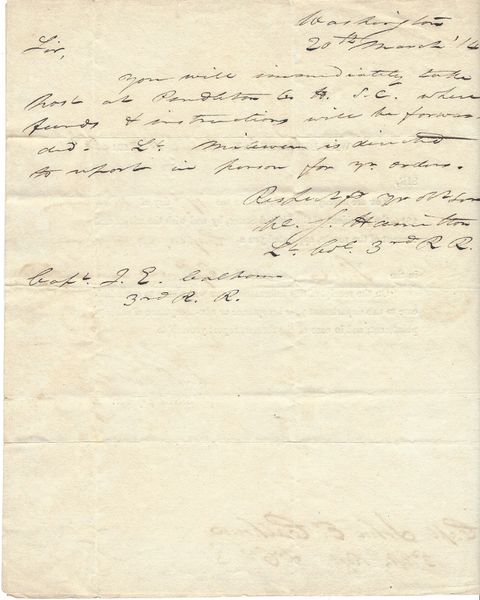 Washington
20th March '14
Sir,
You will immediately take
post at Pendleton C. H. S. C. where
funds & instructions will be forwar-
ded. Lt. is directed
to report in person for yr. orders.
Respectf. yr Obt Ser
W. S. Hamilton
Lt. Col. 3rd R. R.
Capt. J. E. Calhoun
3rd R. R.